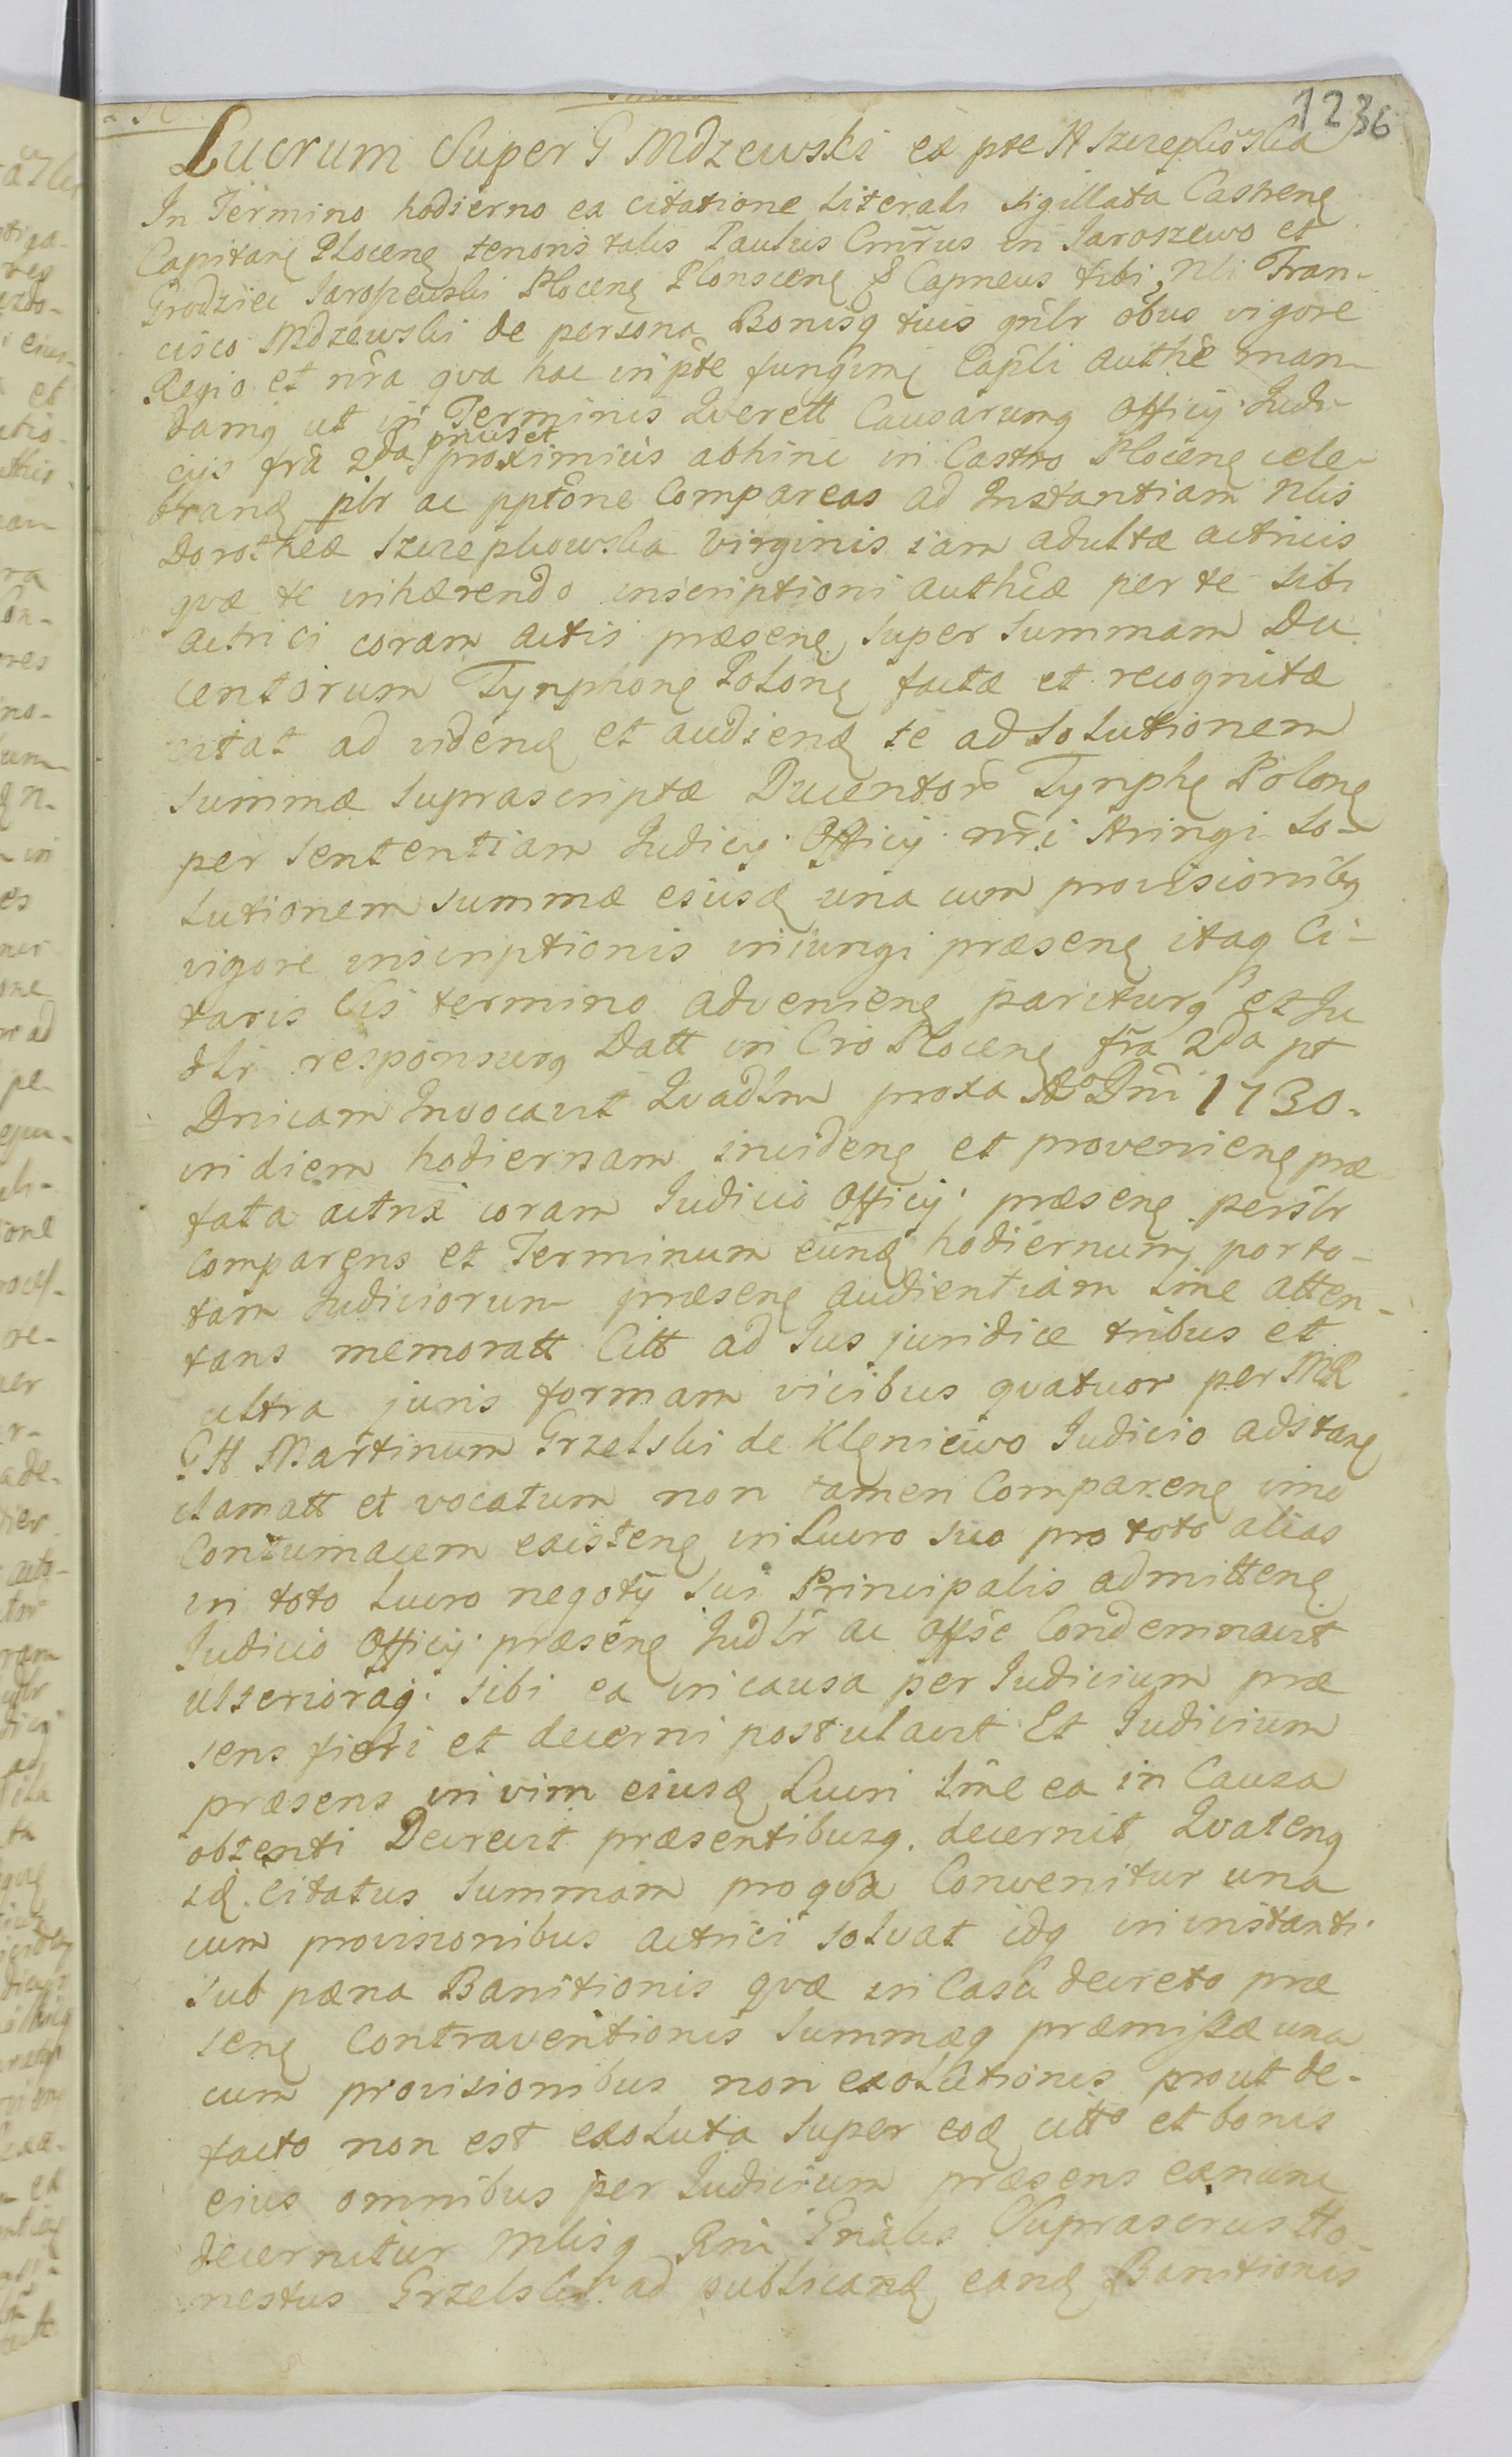 1236
Lucrum Super G Mdzewski ex pte N Szczepkowska
In Termino hodierno ex citatione literali sigillata Castrenę
Capitanę Plocenę tenoris talis Paulus Cmr̃us in Jaroszewo et
Grodziec Jaroszewski Plocenę Plonscenę & Capneus tibi Nli Fran-
cisco Mdzewski de persona Bonisq tuis gñlr õbus vigore
Regio et nr̃a qva hac in pte fungimę Capli authẽ man-
damq ut in Terminis Qverell Causarumq Officÿ Judi-
cÿs fr̃a 2da prius et proximius abhinc in Castro Plocenę cele-
brandę plr ac pptõne Compareas ad Instantiam Nlis
Dorotheæ Szczepkowska Virginis iam adultæ actricis
qvæ te inhærendo inscriptioni authcæ per te sibi
actrici coram actis præsenę super Summam Du
centorum Tynphonę Polonę factæ et recognitæ
citat ad videndę et audiendę te ad Solutionem
Summæ Suprascriptæ Ducentorõ Tynphę Polonę
per Sententiam Judicÿ Officÿ nr̃i stringi So-
lutionem Summæ eiusdę una cum provisionibq
vigore inscriptionis iniungi præsenę itaq Ci-
taris Cis termino advenienę pariturq et Ju
dlr responsurq Datt in Cro Plocenę fr̃a 2da pt
Dnicam Invocavit Qvadlm proxa Ao Dni 1730.
in diem hodiernam incidenę et provenienę præ
fata actrix coram Judicio Officÿ præsenę perslr
comparens et Terminum eundę hodiernum porto-
tam Judiciorum præsenę audientiam lme atten-
tans memoratt Citt ad Jus juridice tribus et
ultra juris formam vicibus qvatuor per MR
G H Martinum Grzelski de Klęnicwo Judicio adstanę
clamatt et vocatum non tamen Comparenę imo
Contumacem existenę in Lucro suo pro toto alias
in toto Lucro negotÿ sui Principalis admittenę
Judicio Officÿ præsenę Judlr ac offse Condemnavit
ulterioraq sibi ea in causa per Judicium præ
sens fieri et decerni postulavit Et Judicium
præsens in vim eiusdę Lucri lme ea in Causa
obtenti Decrevit præsentibusq decernit, Qvatenq
idę citatus Summam pro qva Convenitur una
cum provisionibus actrici solvat idq in instanti
sub pæna Banitionis qvæ in Casu decreto præ
senę Contraventionis Summæq præmissæ una
cum provisionibus non exolutionis prout de-
facto non est exoluta super eodę citto et bonis
eius omnibus per Judicium præsens ex nunc
decernitur Mlisq Rni Gnalis Suprascrus Ho-
nestus Grzelski ad publicandę eandę Banitionis